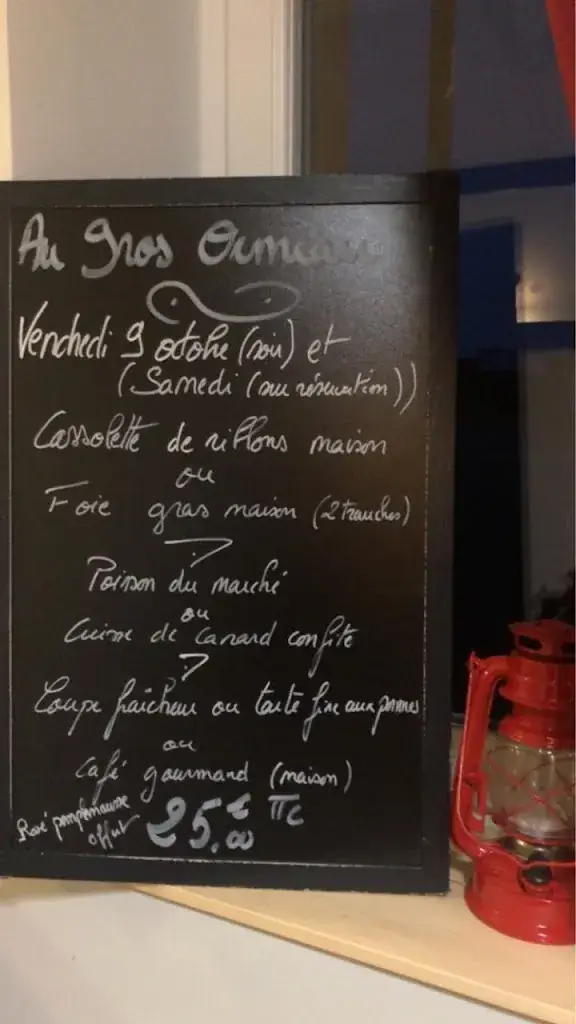 Au Gros
Vendredi 9 octobre (soir) et
(Samedi (sur réservation))
Cassolette de rillons maison
ou
Foie gras maison (2 tranches)
Poisson du marché
ou
Cuisse de Canard confite
Coupe fraîcheur ou tarte fine aux pommes
ou
Café gourmand (maison)
Rosé pamplemousse
offert
25.€00 TTC